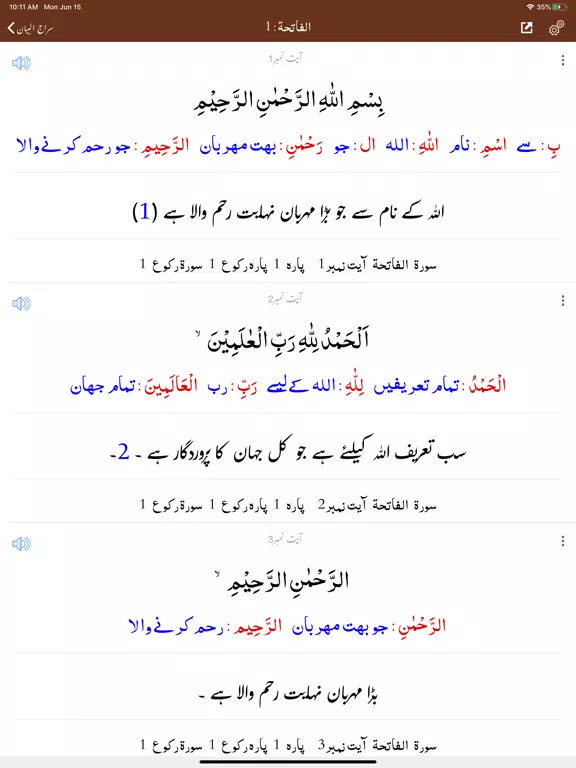 10:11 AM Mon Jun 15 35%
سراج البیان الفاتحة: 1
آیت نمبر1
بِسْمِ اللّٰهِ الرَّحْمٰنِ الرَّحِیْمِ
بِ: سے اسْمِ: نام اللّٰهِ: الله ال: جو رَحْمٰنِ: بهت مهربان الرَّحِیمِ: جو رحم كرنے والا
اللہ کے نام سے جو بڑا مہربان نہایت رحم والا ہے (1)
سورة الفاتحة آیت نمبر 1 پاره 1 پاره ركوع 1 سورة ركوع 1
آیت نمبر2
اَلْحَمْدُ لِلّٰهِ رَبِّ الْعٰلَمِیْنَ ۙ
الْحَمْدُ: تمام تعریفیں لِلّٰهِ: الله كے لیے رَبِّ: رب الْعَالَمِینَ: تمام جهان
سب تعریف اللہ کیلئے ہے جو کل جہان کا پروردگار ہے ۔ 2۔
سورة الفاتحة آیت نمبر 2 پاره 1 پاره ركوع 1 سورة ركوع 1
آیت نمبر3
الرَّحْمٰنِ الرَّحِیْمِ ۙ
الرَّحْمٰنِ: جو بهت مهربان الرَّحِیم: رحم كرنے والا
بڑا مہربان نہایت رحم والا ہے ۔
سورة الفاتحة آیت نمبر 3 پاره 1 پاره ركوع 1 سورة ركوع 1